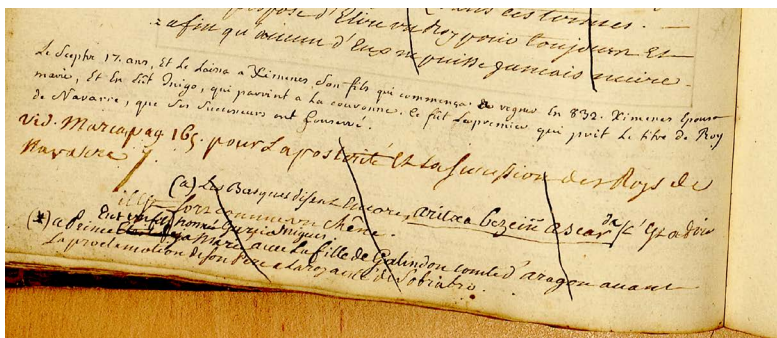 d'Elire un Roy pour toujours Et
afin qu'aucun d'Eux ne puisse jamais nuire.
Le Sceptre 17. ans, Et le laissa a Ximenes son fils qui commença de regner En 832. Ximenes Epousa
marie, Et En eût Inigo, qui parvint a la couronne. Ce fut le premier qui prit Le titre de Roy
de Navarre, que ses successeurs ont conservé.
vid. Marca pag 165. pour La postérité Et La succession des Roys de
Navarre
(a) Les Basques disent Encore, aritza bezein ascar, C'Est a dire
fort comme un chêne.
Eut un fils nommé Garzia
(*) a Peine maria avec La fille de Galindon comte d'aragon avant
La proclamation de son Pere a La royauté de Sobrabro.